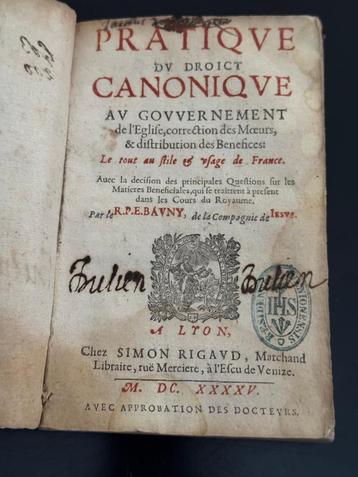 PRATIQVE
DV DROICT
CANONIQVE
AV GOVVERNEMENT
de l'Eglise, correction des Mœurs,
& distribution des Benefices:
Le tout au stile & vsage de France.
Auec la decision des principales Questions sur les
Matieres Beneficiales, qui se traittent à present
dans les Cours du Royaume.
Par le R. P. E. BAVNY, de la Compagnie de IESVS.
Julien Julien
IHS
A LYON,
Chez SIMON RIGAVD, Marchand
Libraire, ruë Merciere, à l'Escu de Venize.
M. DC. XXXXV.
AVEC APPROBATION DES DOCTEVRS.